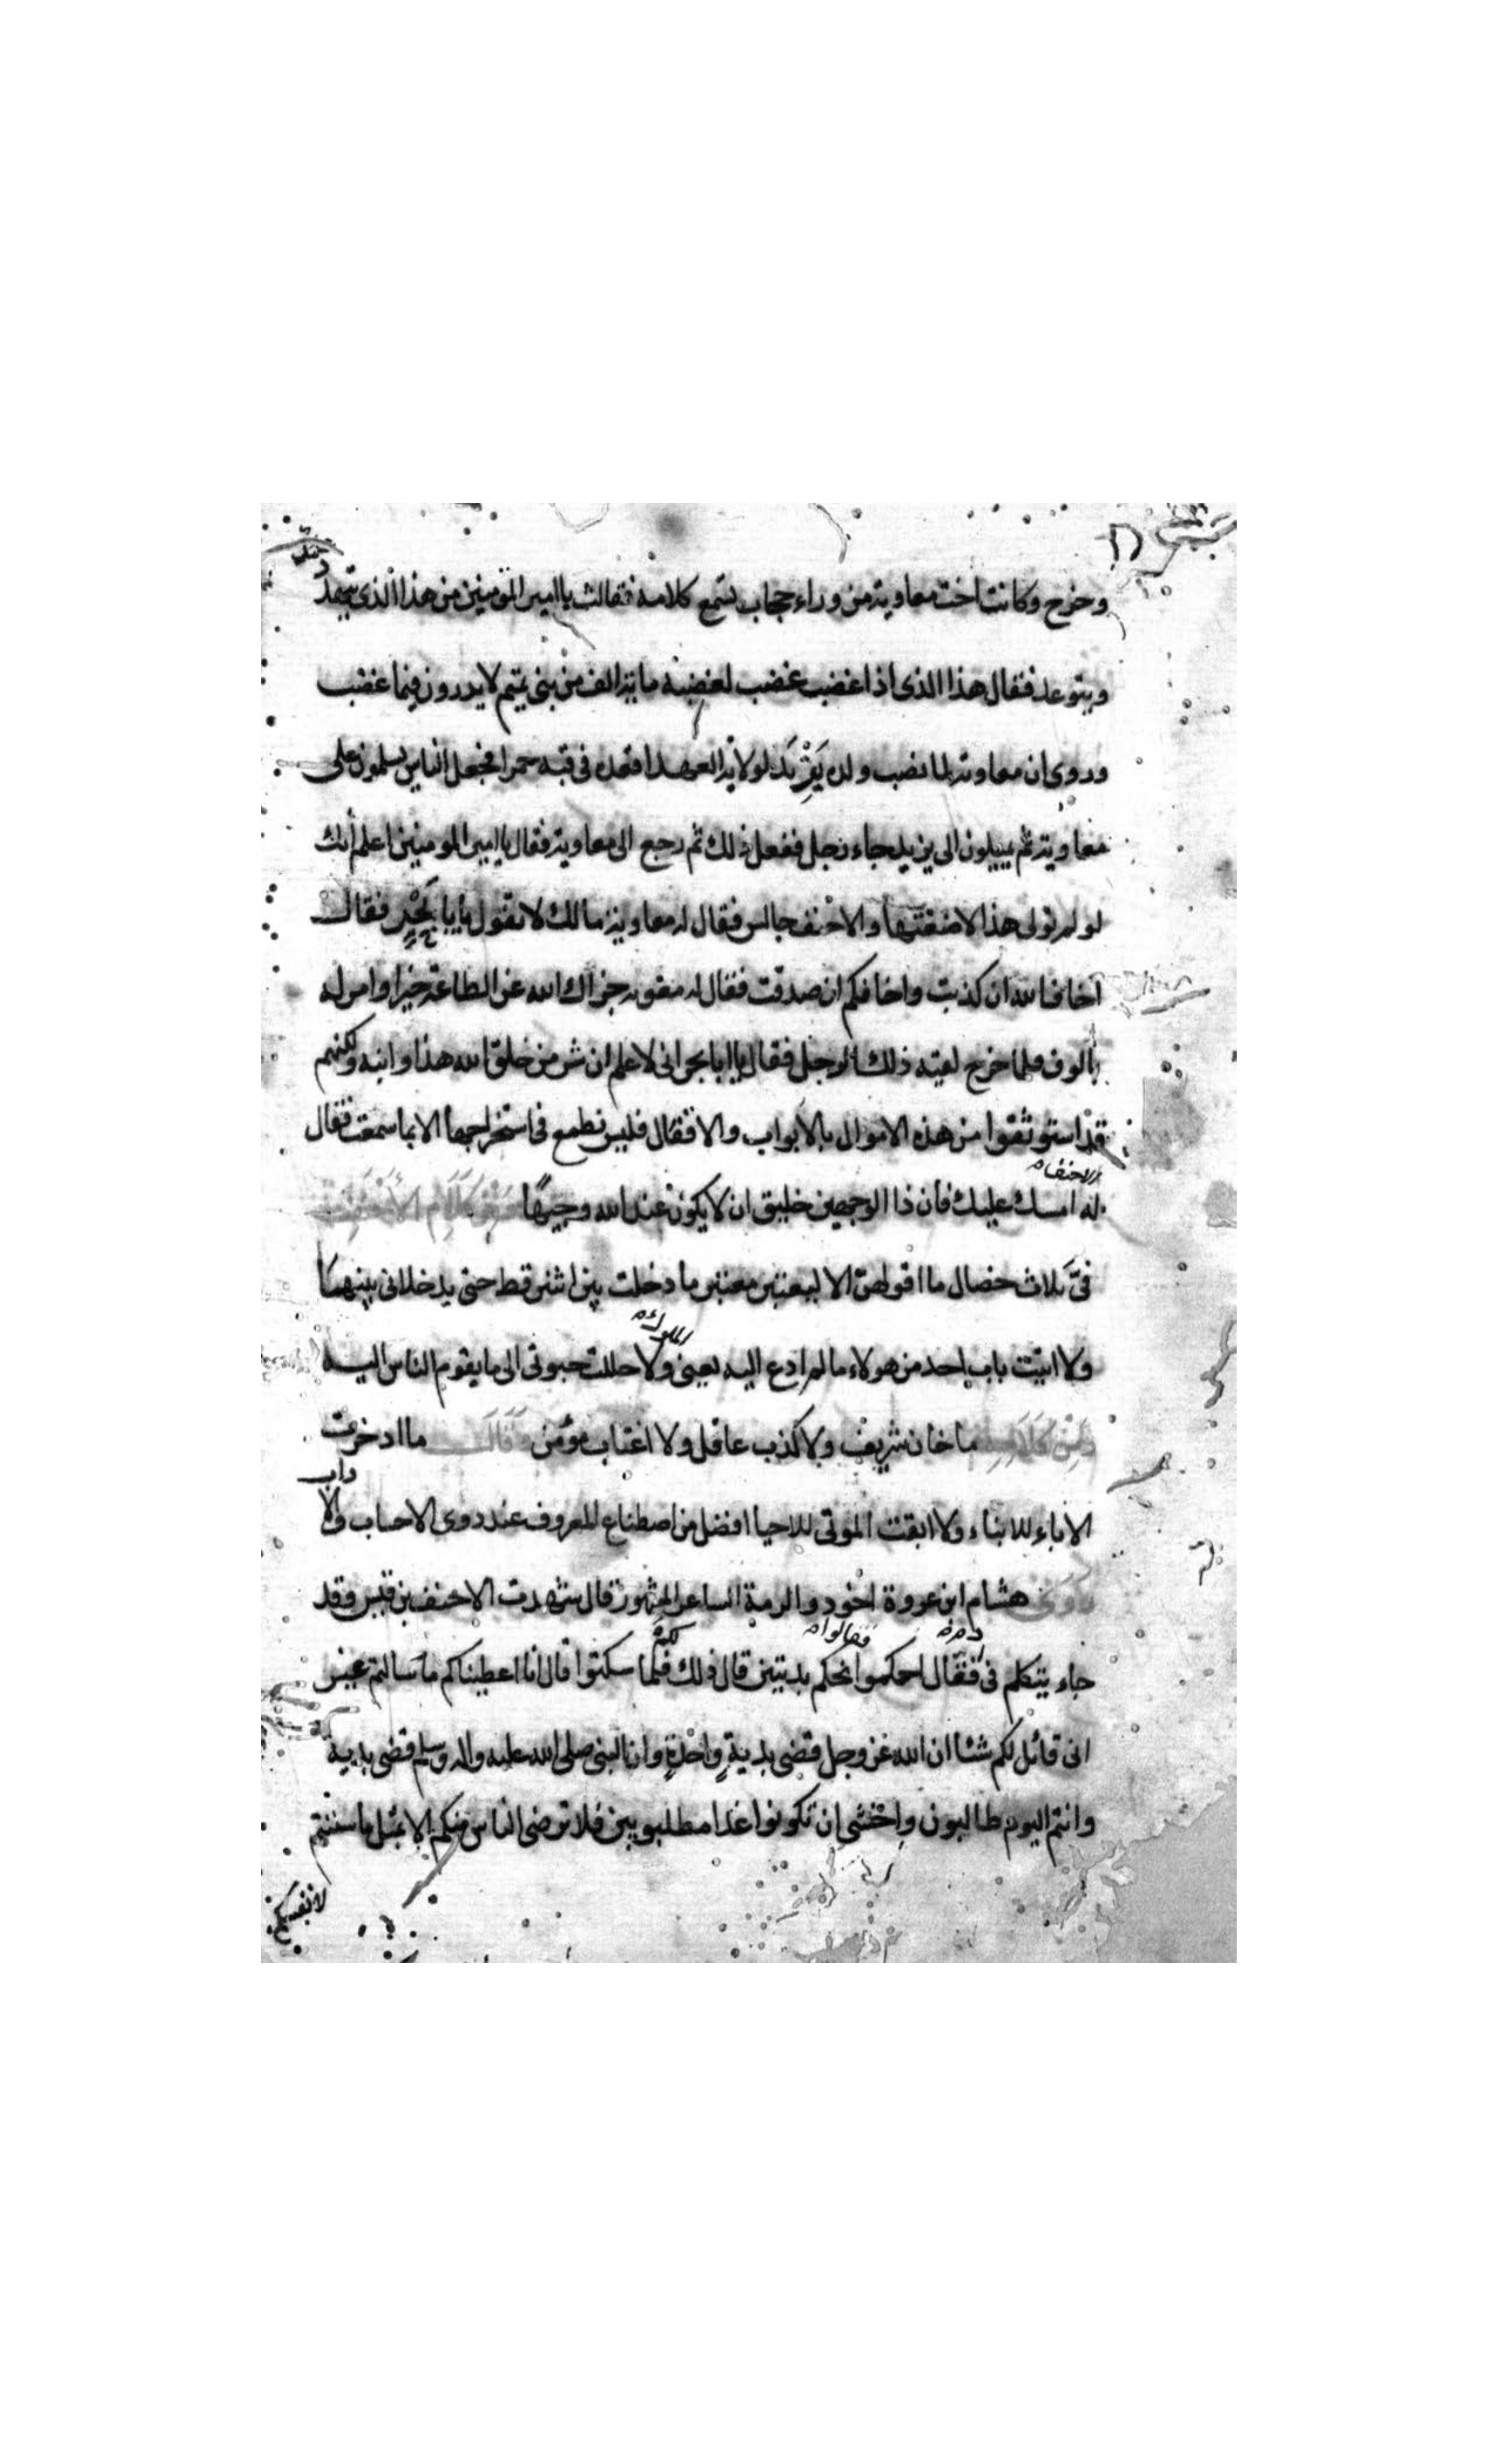 وخرج وكانت اخت معاوية من وراء حجاب تسمع كلامه فقالت يا امير المؤمنين من هذا الذى يتهدد
ويتوعد فقال هذا الذى اذا غضب غضب لغضبه ماية الف من بنى تميم لا يدرون فيما غضب
وروى ان معاوية لما نصب ولده يَزِيدَ لولاية العهد اقعده فى قبه حمرا فجعل الناس يسلمون على
معاوية ثم يميلون الى يزيد جاء رجل ففعل ذلك ثم رجع الى معاوية فقال يا امير المومنين اعلم انك
لو لم تولى هذا لاضعتها والاحنف جالس فقال له معاوية ما لك لا تقول يا با بَحْرٍ فقال
اخاف الله ان كذبت واخافكم ان صدقت فقال له معوية جزاك الله عن الطاعة خيرا وامر له
بالوف فلما خرج لقيته ذلك الرجل فقال يا ابا بحر انى لاعلم ان شر من خلق الله هذا وابنه ولكنهم
قد استوثقوا من هذه الاموال بالابواب والاقفال فليس نطمع فى استخراجها الا بما سمعت فقال
الاحنف
له امسك عليك فان ذا الوجهين خليق ان لا يكون عند الله وجيهًا وَمِنْ كَلَامِ الْأَحْنَفِ
فىّ ثلاث خصال ما اقولهن الا ليعتبر معتبر ما دخلت بين اثنين قط حتى يدخلانى بينهما
ولا اتيت باب احد من هولاء ما لم ادع اليه يعنى ولا حللت حبوتى الى ما يقوم الناس اليه
الملوك
وَمِنْ كَلَامِهِ ما خان شريف ولا كذب عاقل ولا اغتاب مؤمن وَقَالَ ما ادخرت
الاباء للابناء ولا ابقت الموتى للاحيا افضل من اصطناع المعروف عند ذوى الاحساب والا
داب
وروى هشام ابن عروة اخو ذو الرمة الشاعر المشهور قال شهدت الاحنف بن قيس وقد
جاء يتكلم فى فقال احكموا نحكم بديتين قال ذلك فلما سكتوا قال انا اعطيناكم ما سالتم غير
دم فقالوا لكم
انى قائل لكم شئا ان الله عز وجل قضى بدية واحدةٍ وان النبى صلى الله عليه واله وسلم قضى بدية
وانتم اليوم طالبون واخشى ان تكونوا غدا مطلوبين فلا ترضى الناس منكم الا بمثل ما سننتم
لانفسكم